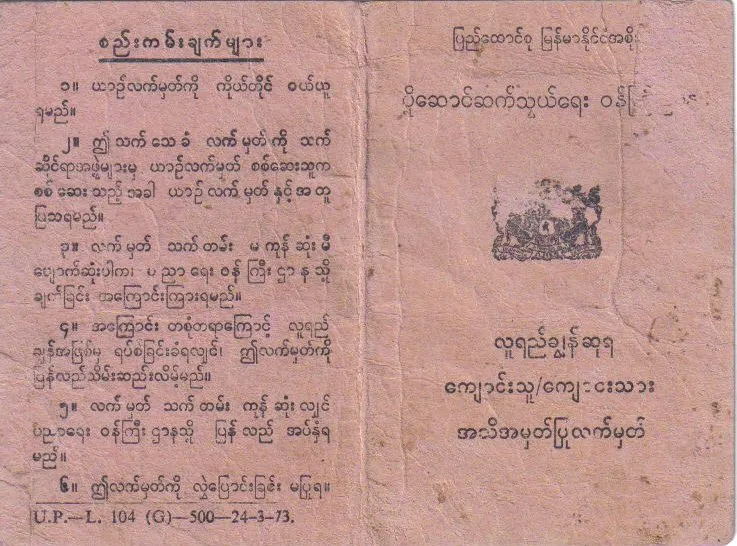 စည်းကမ်းချက်များ
၁။ ယာဉ်လက်မှတ်ကို ကိုယ်တိုင် ဝယ်ယူ
ရမည်။
၂။ ဤ သက် သေ ခံ လက် မှတ် ကို သက်
ဆိုင်ရာအဖွဲ့များမှ ယာဉ်လက်မှတ် စစ်ဆေးသူက
စစ် ဆေး သည့် အခါ ယာဉ် လက် မှတ် နှင့် အ တူ
ပြသရမည်။
၃။ လက် မှတ် သက် တမ်း မ ကုန် ဆုံး မီ
ပျောက်ဆုံးပါက၊ ပ ညာ ရေး ဝန် ကြီး ဌာ န သို့
ချက်ခြင်း အကြောင်းကြားရမည်။
၄။ အကြောင်း တစုံတရာကြောင့် လူရည်
ချွန်အဖြစ်မှ ရပ်စဲခြင်းခံရလျှင်၊ ဤလက်မှတ်ကို
ပြန်လည်သိမ်းဆည်းလိမ့်မည်။
၅။ လက် မှတ် သက် တမ်း ကုန် ဆုံး လျှင်
ပညာရေး ဝန်ကြီး ဌာနသို့ ပြန် လည် အပ်နှံရ
မည်။
၆။ ဤလက်မှတ်ကို လွှဲပြောင်းခြင်း မပြုရ။
U.P.—L. 104 (G)—500—24-3-73.
ပြည်ထောင်စု မြန်မာနိုင်ငံအစိုး
ပို့ဆောင်ဆက်သွယ်ရေး ဝန်ကြ
လူရည်ချွန်ဆုရ
ကျောင်းသူ/ကျောင်းသား
အသိအမှတ်ပြုလက်မှတ်